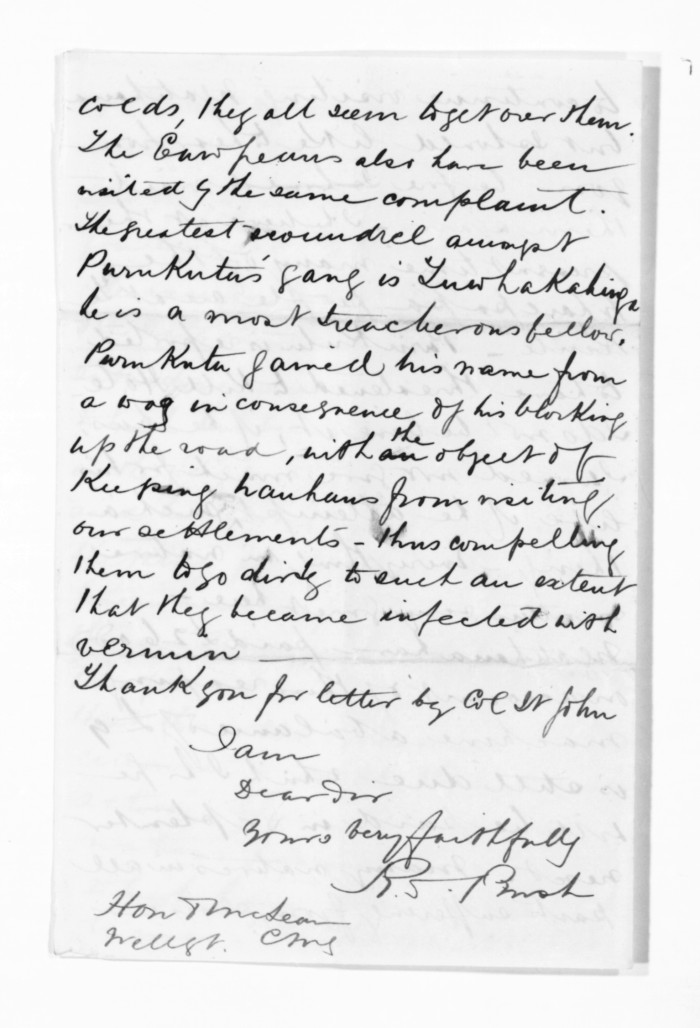 colds, they all seem to get over them.
The Europeans also have been
visited by the same complaint.
The greatest scoundrel amongst
Purukutu's gang is Tuwhakahinga
he is a most treacherous fellow.
Purukutu gained his name from
a wag in consequence of his blocking
up the road, with the object of
Keeping hauhaus from visiting
our settlements - thus compelling
them to go dirty to such an extent
that they became infected with
vermin —
Thank you for letter by Col St John
I am
Dear Sir
Yours very faithfully
R.S. Bush
Hon D McLean
Wellgt. CMG